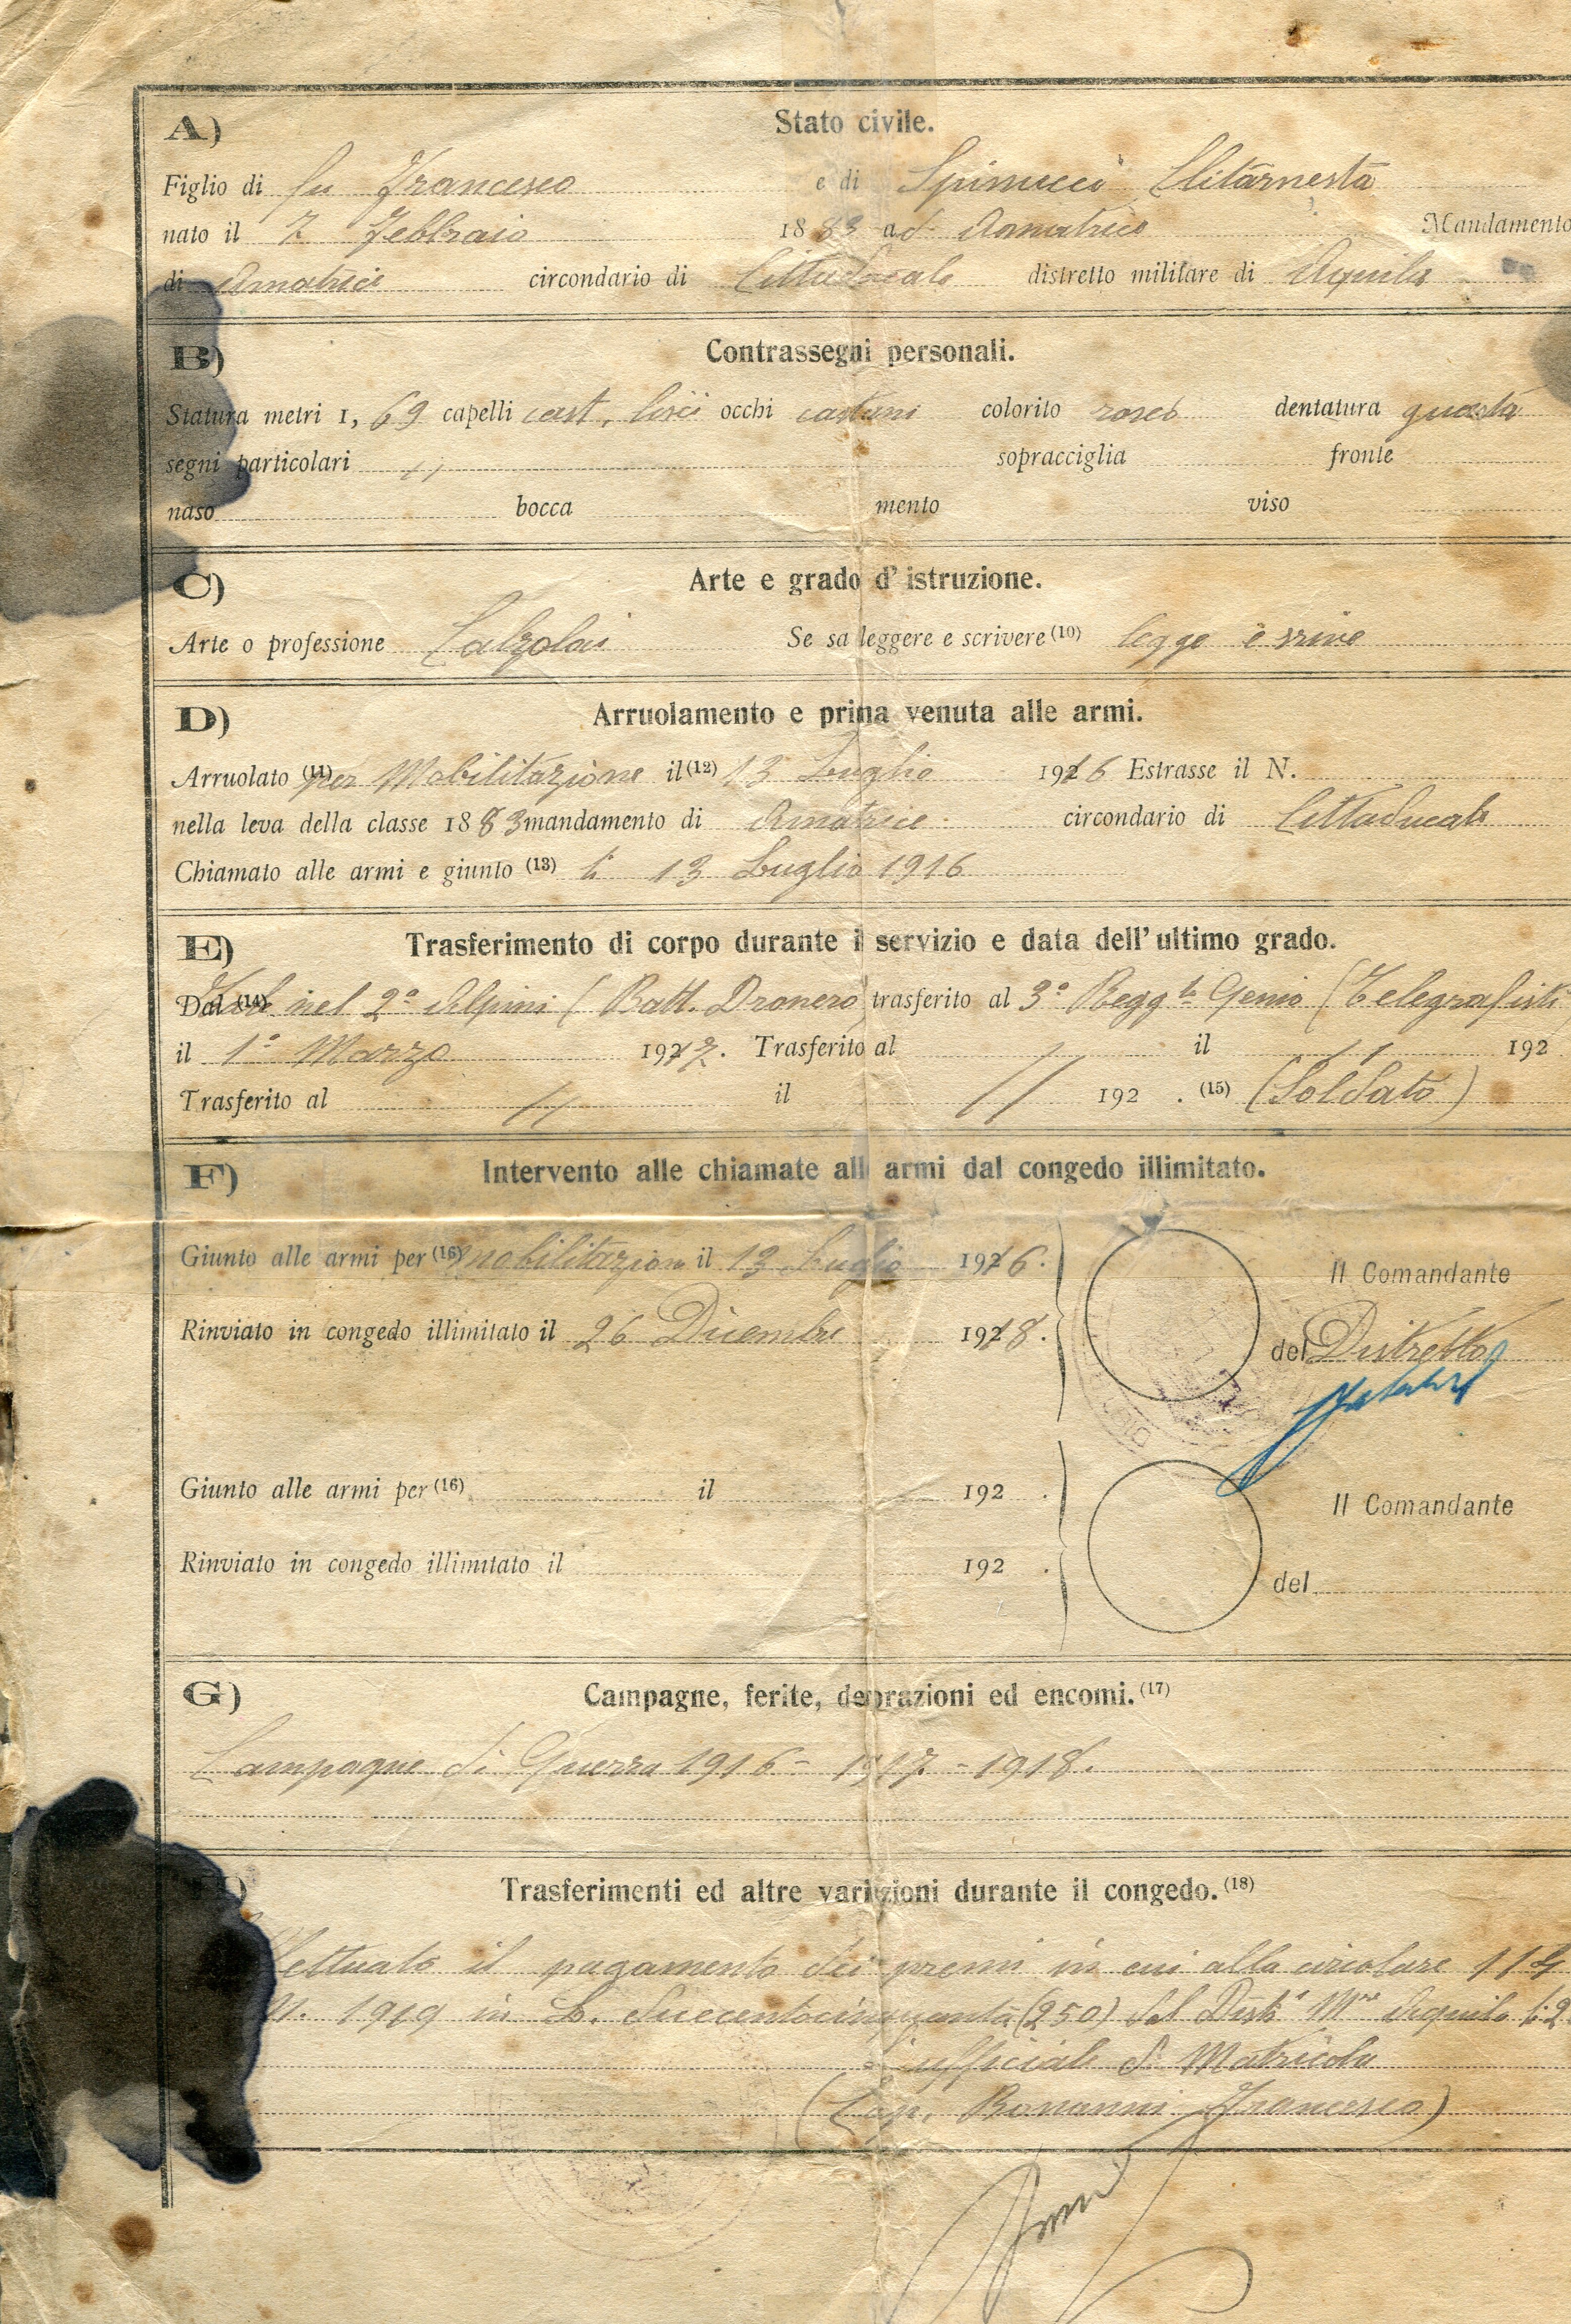 A) Stato civile.
Figlio di fu Francesco e di Spinucci Clitarnesta
nato il 7 Febbraio 1883 ad Amatrice Mandamento
di Amatrice circondario di Cittaducale distretto militare di Aquila
B) Contrassegni personali.
Statura metri 1,69 capelli cast. lisci occhi castani colorito roseo dentatura guasta
segni particolari // sopracciglia fronte
naso bocca mento viso
C) Arte e grado d'istruzione.
Arte o professione Calzolai Se sa leggere e scrivere (10) legge e scrive
D) Arruolamento e prima venuta alle armi.
Arruolato (11) per Mobilitazione il (12) 13 Luglio 1916 Estrasse il N.
nella leva della classe 1883 mandamento di Amatrice circondario di Cittaducale
Chiamato alle armi e giunto (13) li 13 Luglio 1916
E) Trasferimento di corpo durante il servizio e data dell'ultimo grado.
Dal (14) nel 2° Alpini (Batt. Dronero) trasferito al 3° Regg.to Genio (Telegrafisti
il 1° Marzo 1917. Trasferito al // il // 192
Trasferito al // il // 192 . (15) (Soldato)
F) Intervento alle chiamate alle armi dal congedo illimitato.
Giunto alle armi per (16) mobilitazione il 13 Luglio 1916.
Il Comandante
Rinviato in congedo illimitato il 26 Dicembre 1918.
del Distretto
Giunto alle armi per (16) il 192 .
Il Comandante
Rinviato in congedo illimitato il 192 .
del
G) Campagne, ferite, decorazioni ed encomi. (17)
Campagne di Guerra 1916 - 1917 - 1918.
Trasferimenti ed altre variazioni durante il congedo. (18)
il pagamento dei premi in cui alla circolare 114
1919 in L. duecentocinquanta (250) dal Dist. M.re Aquila li 2
ufficiale di Matricola
(Cap. Bonanni Francesco)